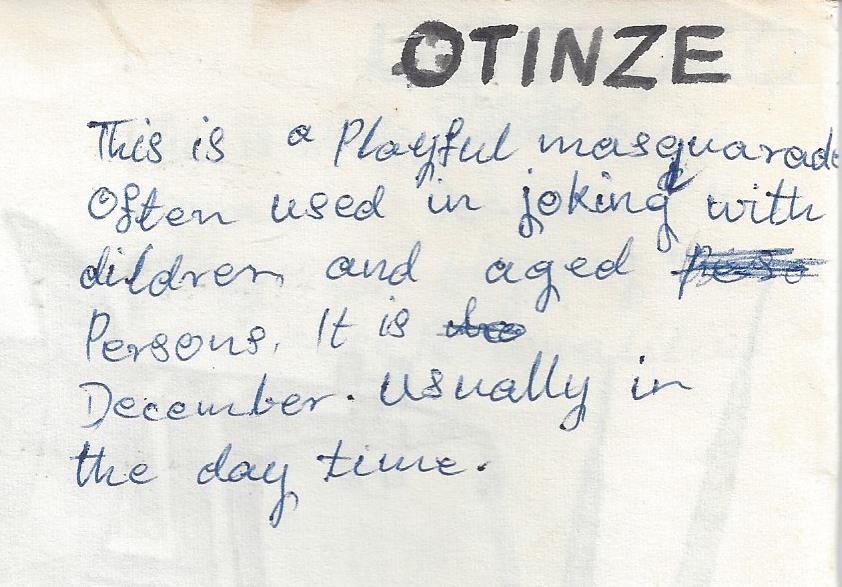 OTINZE
This is a Playful masquarade
Often used in joking with
children and aged
Persons. It is
December. Usually in
the day time.